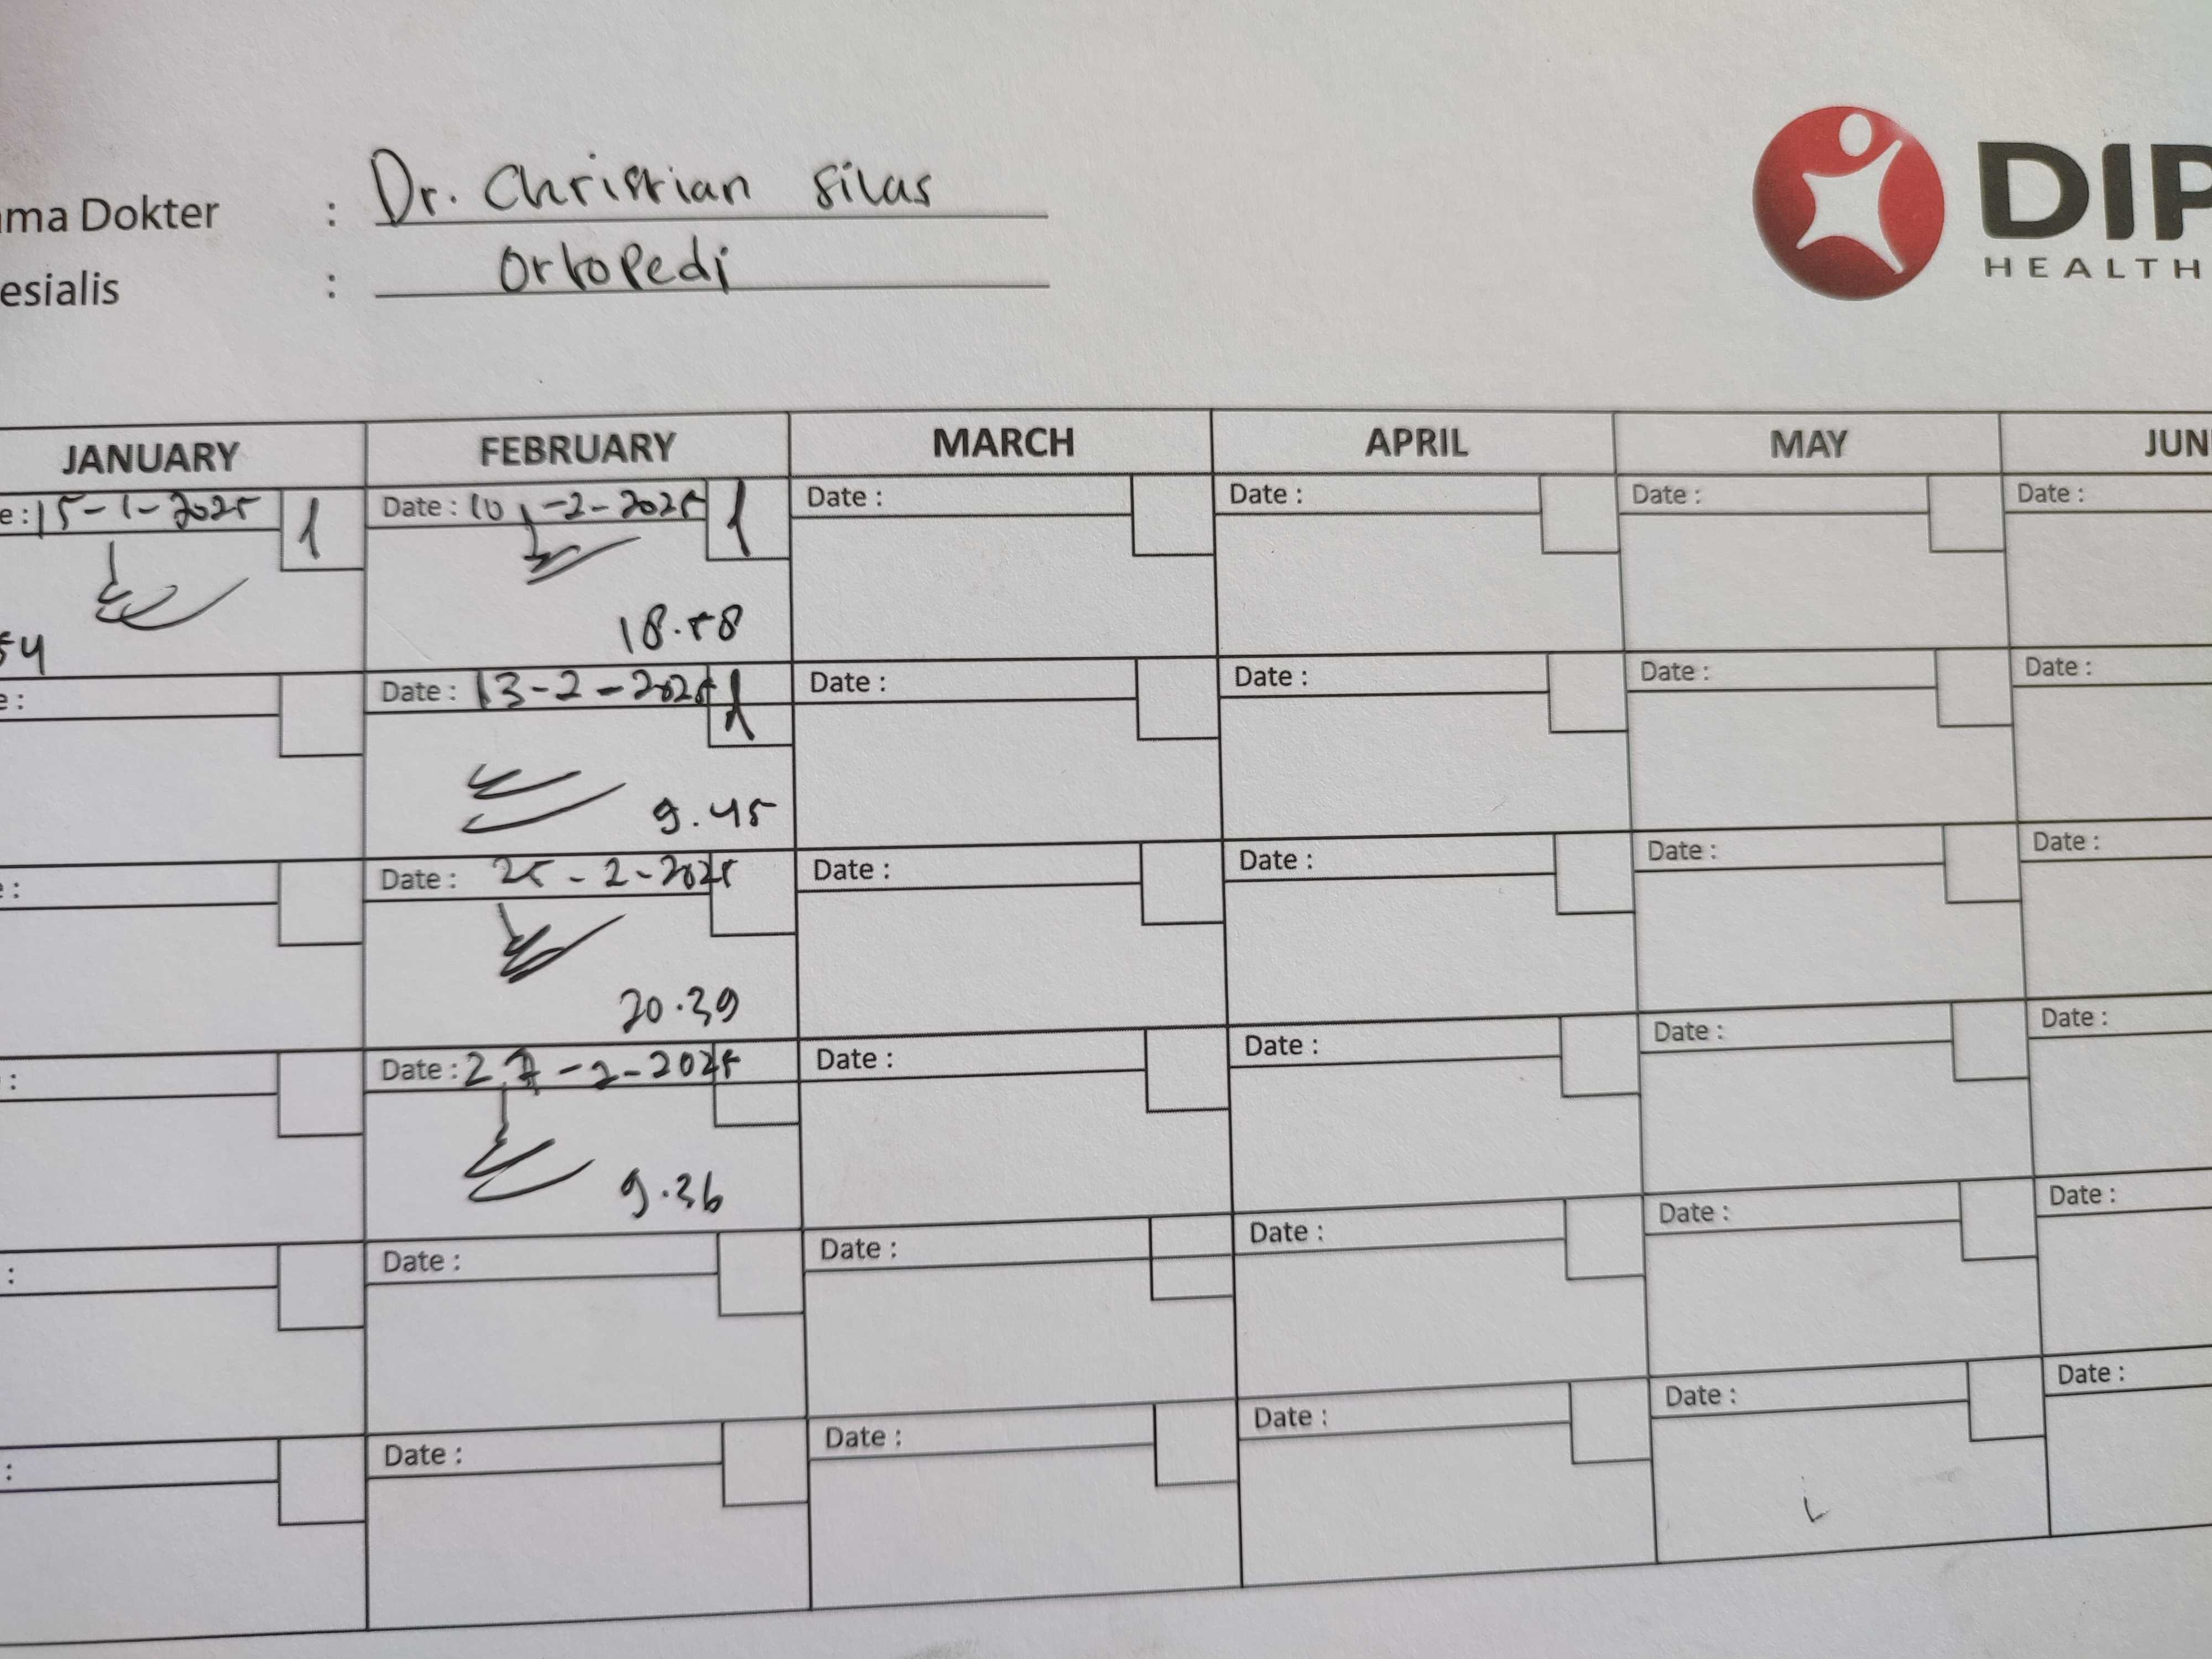 ama Dokter : Dr. Christian Silas
esialis : Ortopedi
DIP
HEALTH
JANUARY FEBRUARY MARCH APRIL MAY JUN
e : 15-1-2025 1 Date : 10-2-2025 1 Date : Date : Date : Date :
54 18.58
e : Date : 13-2-2025 1 Date : Date : Date : Date :
9.45
e : Date : 25-2-2025 Date : Date : Date : Date :
20.39
: Date : 27-2-2025 Date : Date : Date : Date :
9.36
: Date : Date : Date : Date : Date :
: Date : Date : Date : Date : Date :